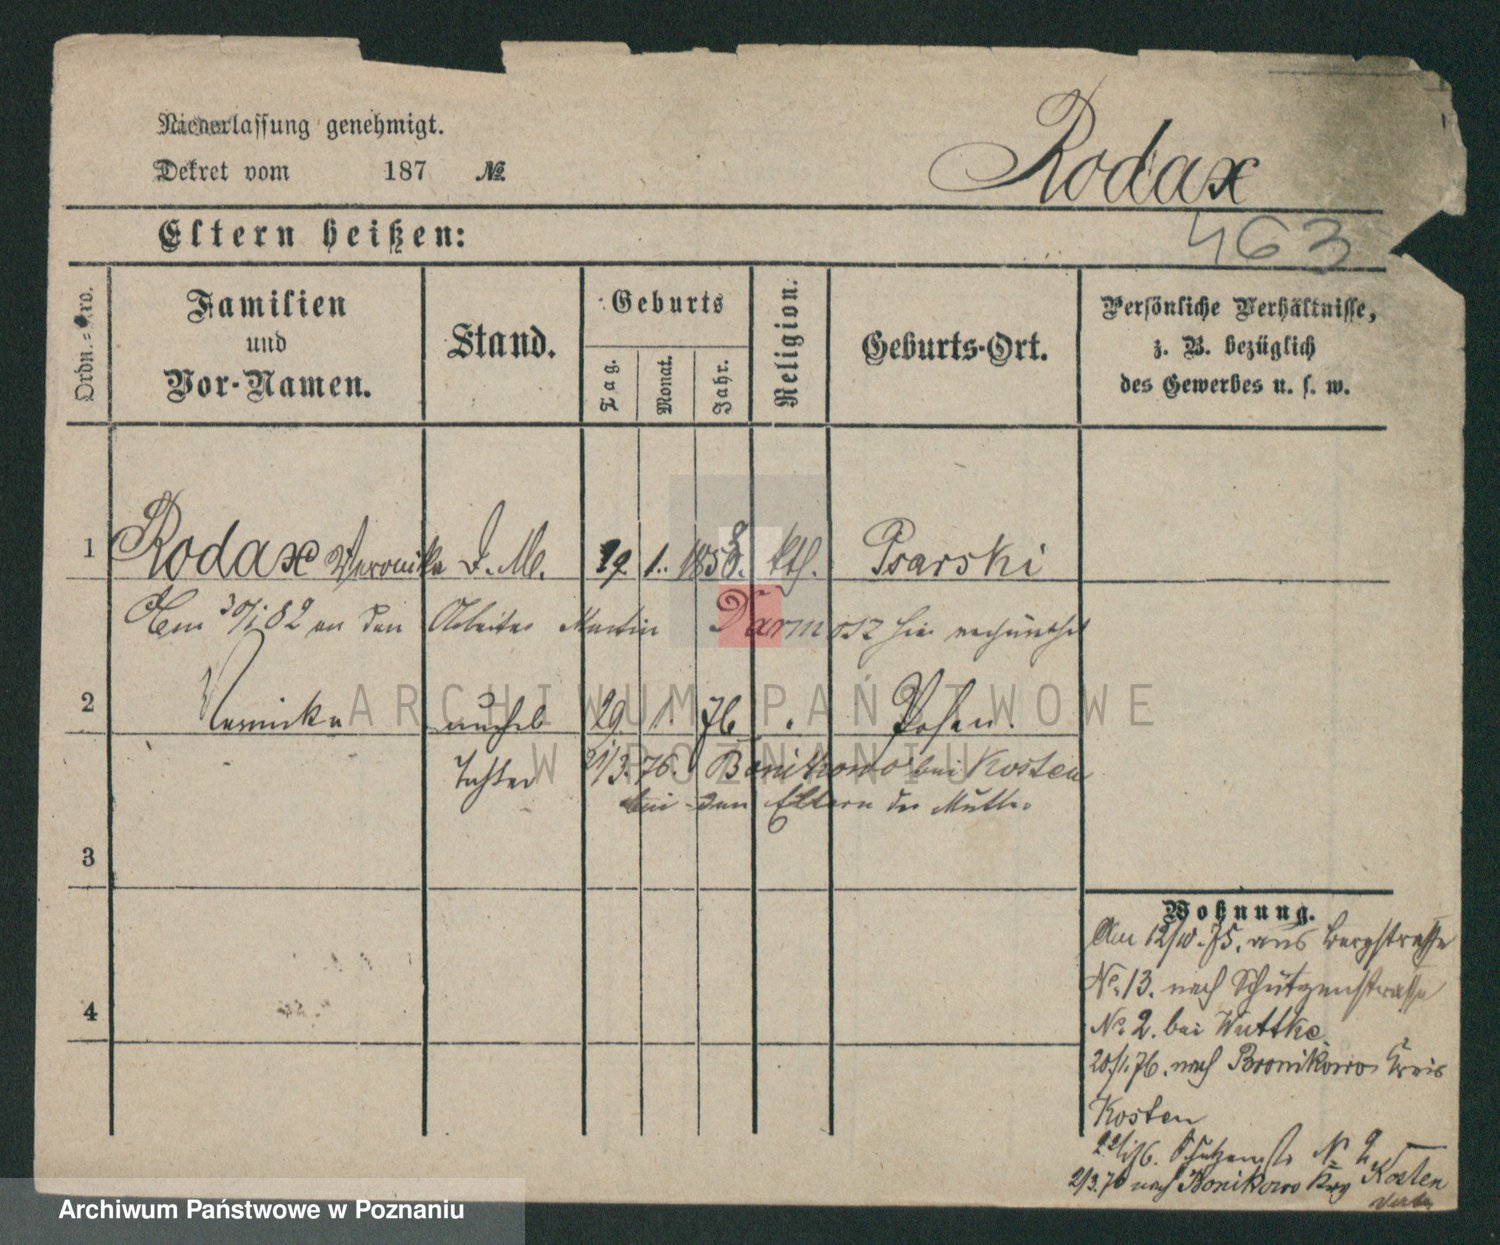 Niederlassung genehmigt.
Dekret vom 187 №
Rodax
Eltern heißen:
463
Ordn.=Nro.
Familien
und
Vor-Namen.
Stand.
Geburts
Tag.
Monat.
Jahr.
Religion.
Geburts-Ort.
Persönliche Verhältnisse,
z. B. bezüglich
des Gewerbes u. s. w.
1 Rodax Veronika D. M. 1. kth. Psarski
Am 30/1 82 an den Arbeiter Martin Darmosz hier
2 unehel 29 1. 76 Posen.
Tochter 21/3. 76. Bonikowo bei Kosten
bei den Eltern der Mutter
3
4
Wohnung.
Am 12/10. 75. aus Bergstrasse
No. 13. nach Schützenstrasse
No. 2. bei Wuttke
20/1. 76. nach Bronikowo Kreis
Kosten
No 2
2/3. 76 nach Bonikowo Kosten
ARCHIWUM PAŃSTWOWE
W POZNANIU
Archiwum Państwowe w Poznaniu